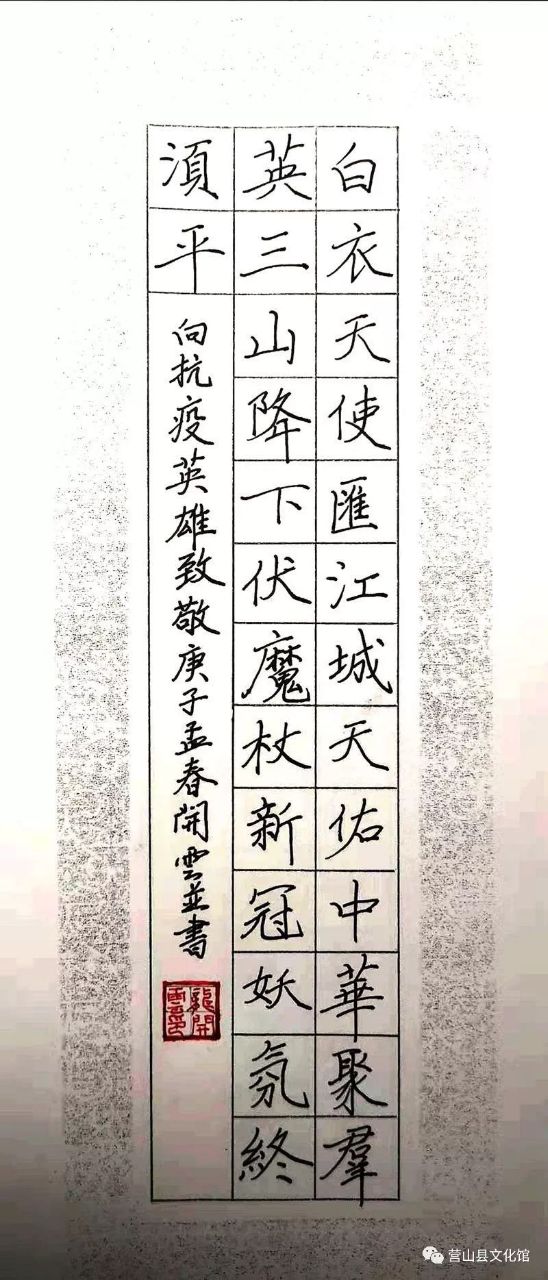 白衣天使匯江城天佑中華聚羣
英三山降下伏魔杖新冠妖氛終
須平
向抗疫英雄致敬庚子孟春開雲並書
龍開雲印
营山县文化馆